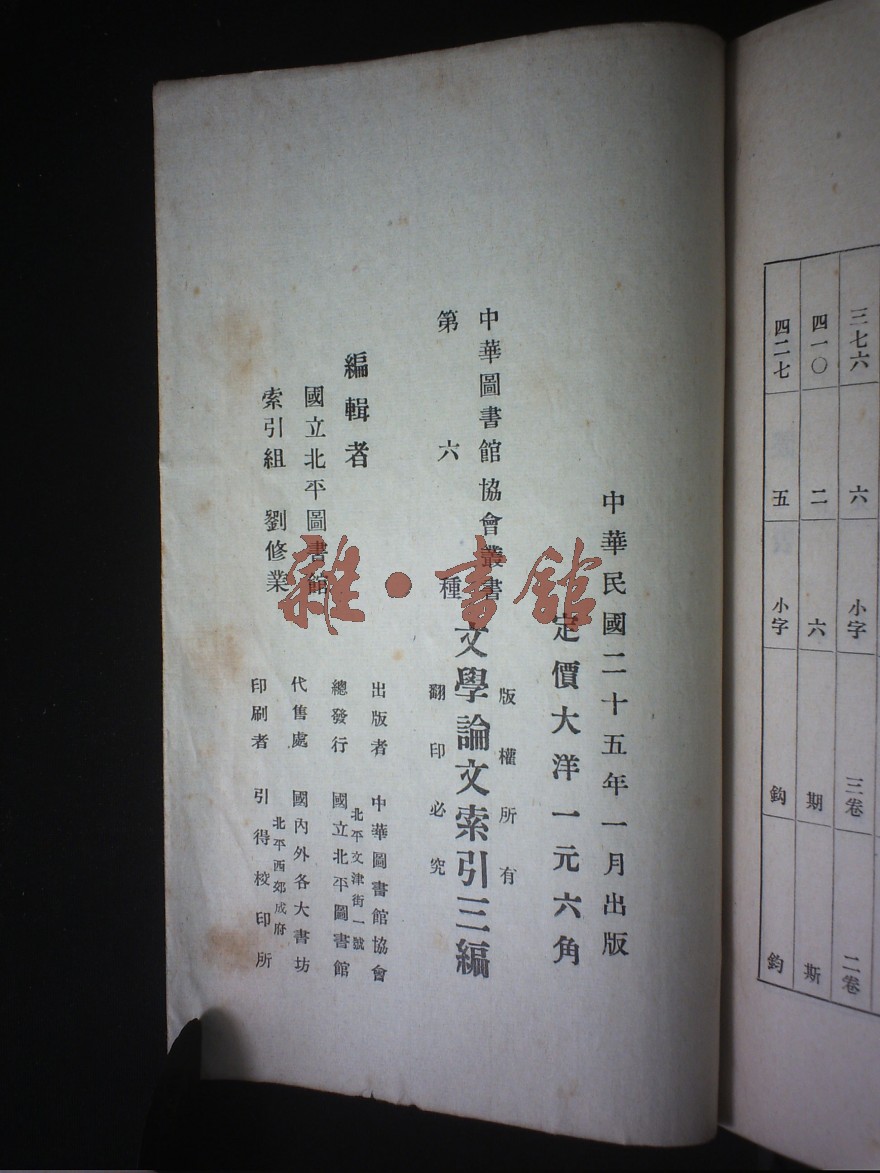 中華民國二十五年一月出版
定價大洋一元六角
版權所有
中華圖書館協會叢書
文學論文索引三編
第六種
翻印必究
編輯者
國立北平圖書館
索引組 劉修業
出版者 中華圖書館協會
北平文津街一號
總發行 國立北平圖書館
代售處 國內外各大書坊
北平西郊成府
印刷者 引得校印所
雜·書館
三七六 六 小字 三卷 二卷
四一〇 二 六 期 斯
四二七 五 小字 鈎 鈞